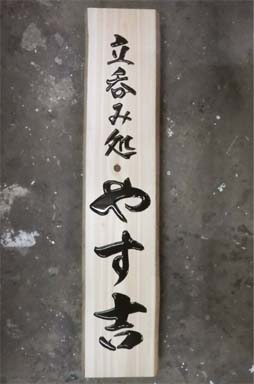 立呑み処・やす吉